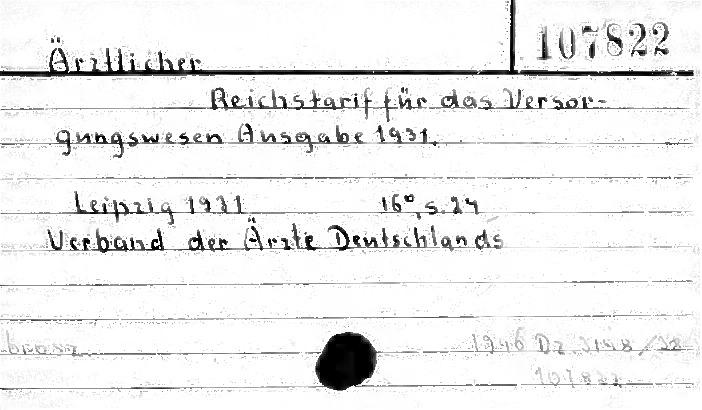 107822
Ärztlicher
Reichstarif für das Versor-
gungswesen Ausgabe 1931.
Leipzig 1931 16°, s. 24
Verband der Ärzte Deutschlands
brosz
1946 Dz
107822